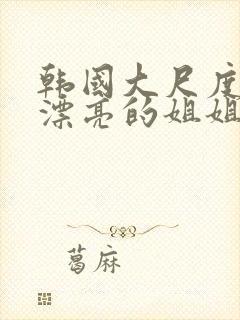 韩国大尺度
漂亮的姐姐
葛麻